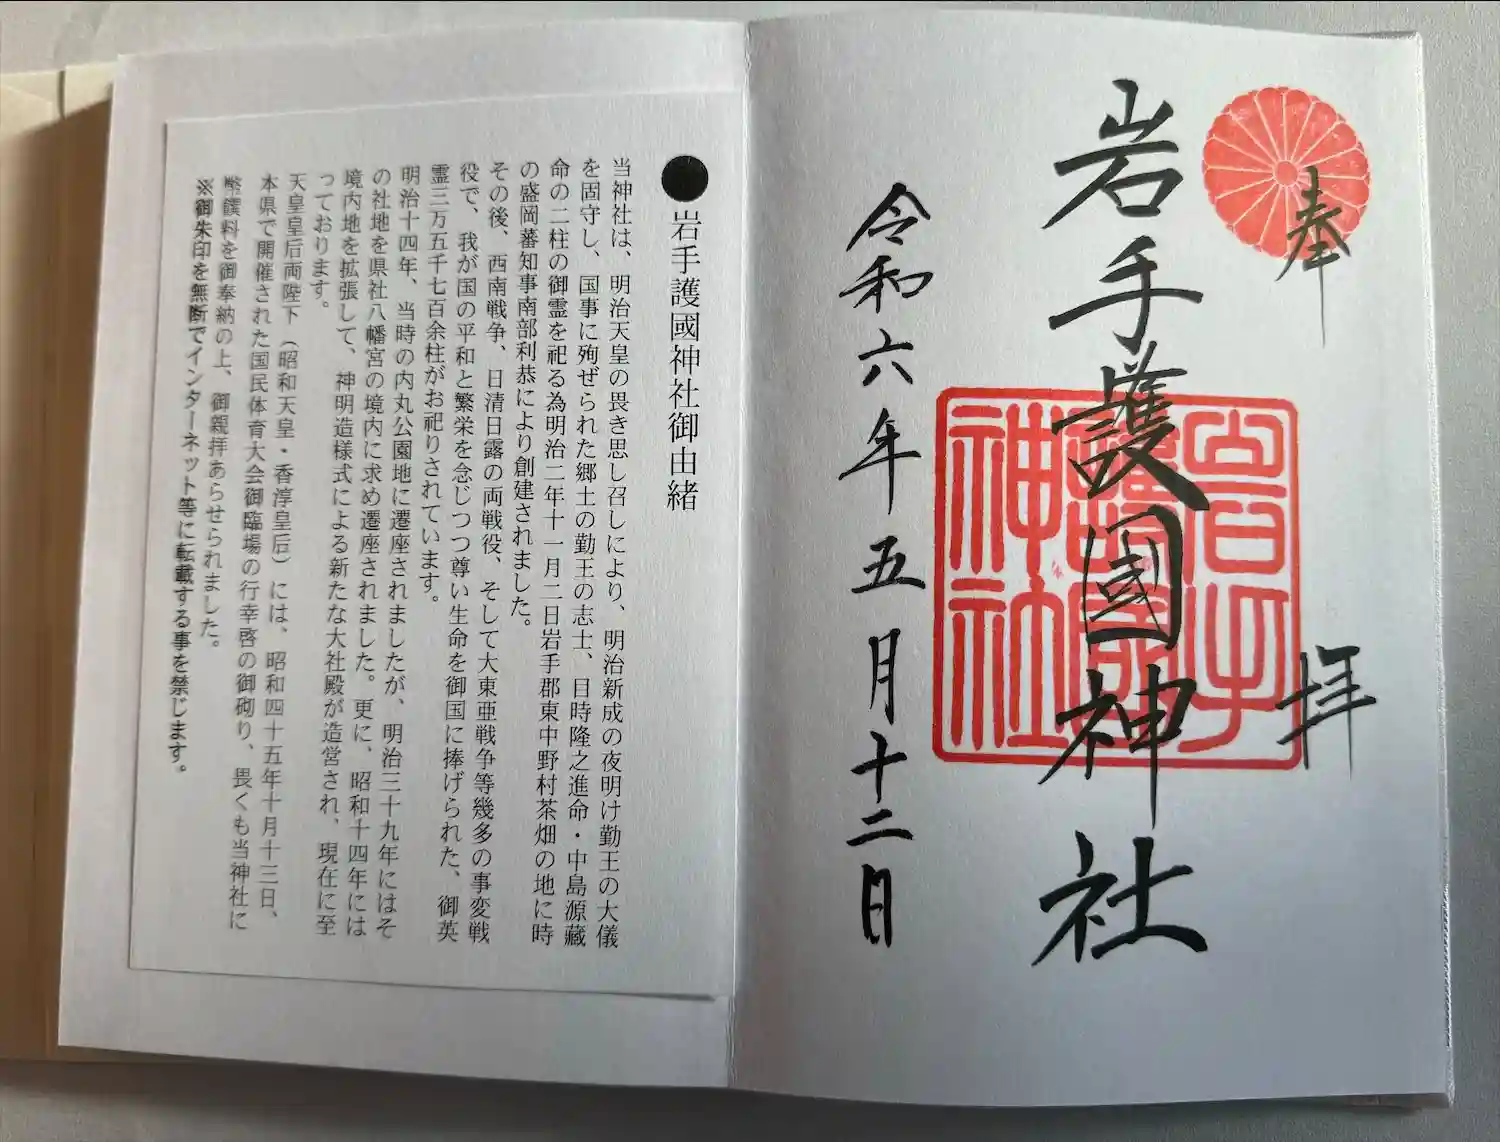 奉拝
岩手護國神社
岩手
護國
神社
令和六年五月十二日
●岩手護國神社御由緒
当神社は、明治天皇の畏き思し召しにより、明治新成の夜明け勤王の大儀
を固守し、国事に殉ぜられた郷土の勤王の志士、目時隆之進命・中島源蔵
命の二柱の御霊を祀る為明治二年十一月二日岩手郡東中野村茶畑の地に時
の盛岡藩知事南部利恭により創建されました。
その後、西南戦争、日清日露の両戦役、そして大東亜戦争等幾多の事変戦
役で、我が国の平和と繁栄を念じつつ尊い生命を御国に捧げられた、御英
霊三万五千七百余柱がお祀りされています。
明治十四年、当時の内丸公園地に遷座されましたが、明治三十九年にはそ
の社地を県社八幡宮の境内に求め遷座されました。更に、昭和十四年には
境内地を拡張して、神明造様式による新たな大社殿が造営され、現在に至
っております。
天皇皇后両陛下（昭和天皇・香淳皇后）には、昭和四十五年十月十三日、
本県で開催された国民体育大会御臨場の行幸啓の御砌り、畏くも当神社に
幣饌料を御奉納の上、御親拝あらせられました。
※御朱印を無断でインターネット等に転載する事を禁じます。